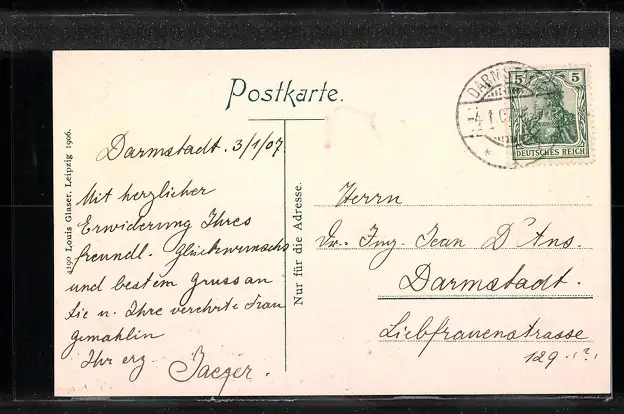 Postkarte.
DARMSTADT
-4.1.07
5 5
DEUTSCHES REICH
Darmstadt. 3/1/07
Mit herzlicher
Erwiderung Ihres
freundl. Glückwunschs
und bestem Gruss an
Sie u. Ihre verehrte Frau
Gemahlin
Ihr erg. Jaeger.
4190 Louis Glaser, Leipzig 1906.
Nur für die Adresse.
Herrn
Dr. Ing. Jean D'Ans.
Darmstadt.
Liebfrauenstrasse
129 (?)